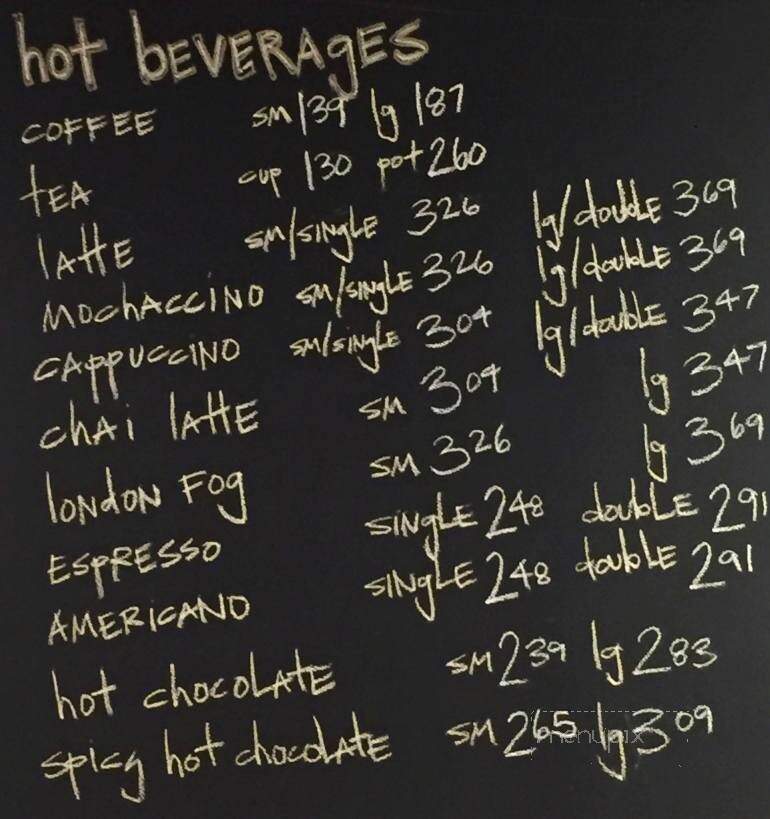 hot BEVERAgES
COFFEE SM 139 lg 187
tEA cup 130 pot 260
lAttE SM/SINglE 326 lg/doublE 369
MOchACCINO SM/SINglE 326 lg/doublE 369
CAppUCCINO SM/SINglE 304 lg/doublE 347
chAi lAttE SM 304 lg 347
loNdoN Fog SM 326 lg 369
ESpRESSO SINglE 248 doublE 291
AMERICANO SINglE 248 doublE 291
hot chocolAtE SM 239 lg 283
spicy hot chocolAtE SM 265 lg 309
menupix